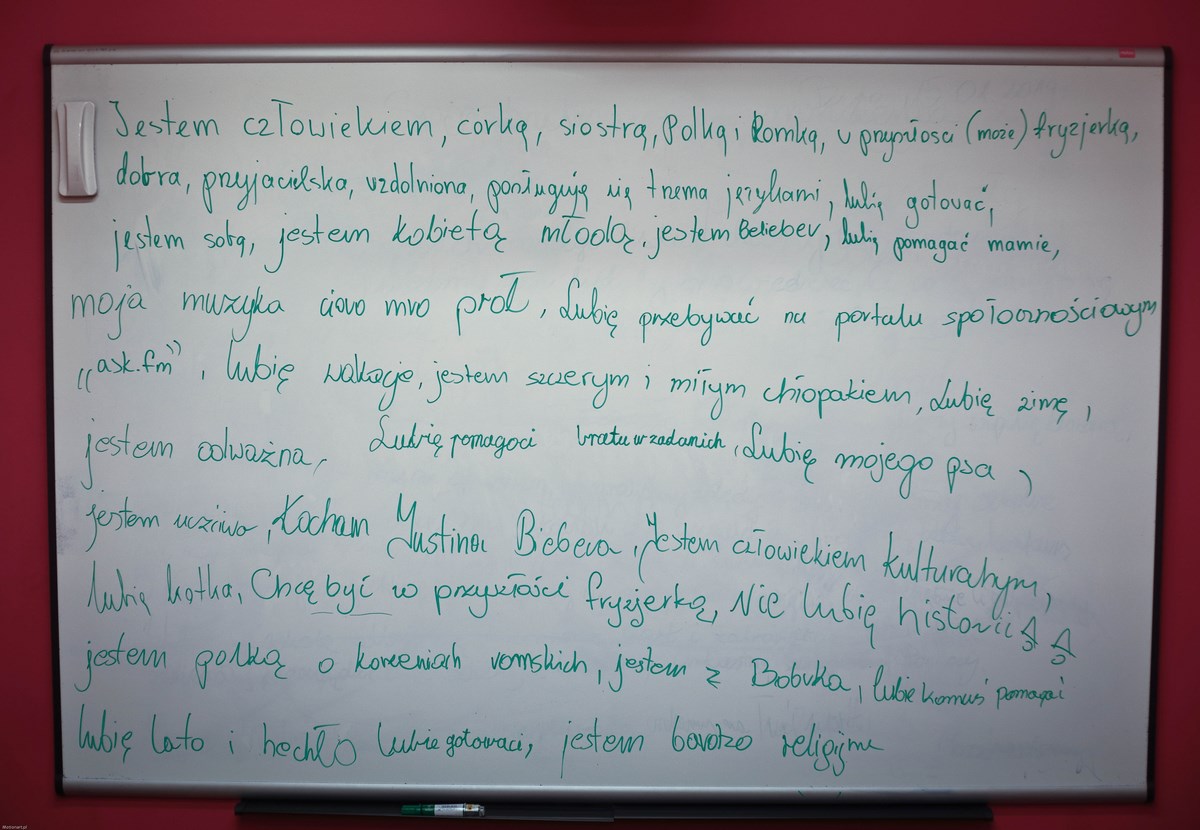 Jestem człowiekiem, córką, siostrą, Polką i Romką, w przyszłosci (może) fryzjerką,
dobra, przyjacielska, uzdolniona, posługuję się trzema językami, lubię gotować,
jestem sobą, jestem kobietą młodą, jestem Belieber, lubię pomagać mamie,
moja muzyka ciovo mro prał, Lubię przebywać na portalu społecznościowym
"ask.fm", lubię wakacje, jestem szczerym i miłym chłopakiem, Lubię zimę,
jestem odważna, Lubię pomagaci bratu w zadanich, Lubię mojego psa,
jestem uczciwa, Kocham Justina Biebera, Jestem człowiekiem kulturalnym,
lubię kotka, Chcę być w przyszłości fryzjerką, Nie lubię historii
jestem polką o korzeniach romskich, jestem z Bobrka, lubie komuś pomagać
lubię lato i hechło lubie gotowaci, jestem bardzo religijna